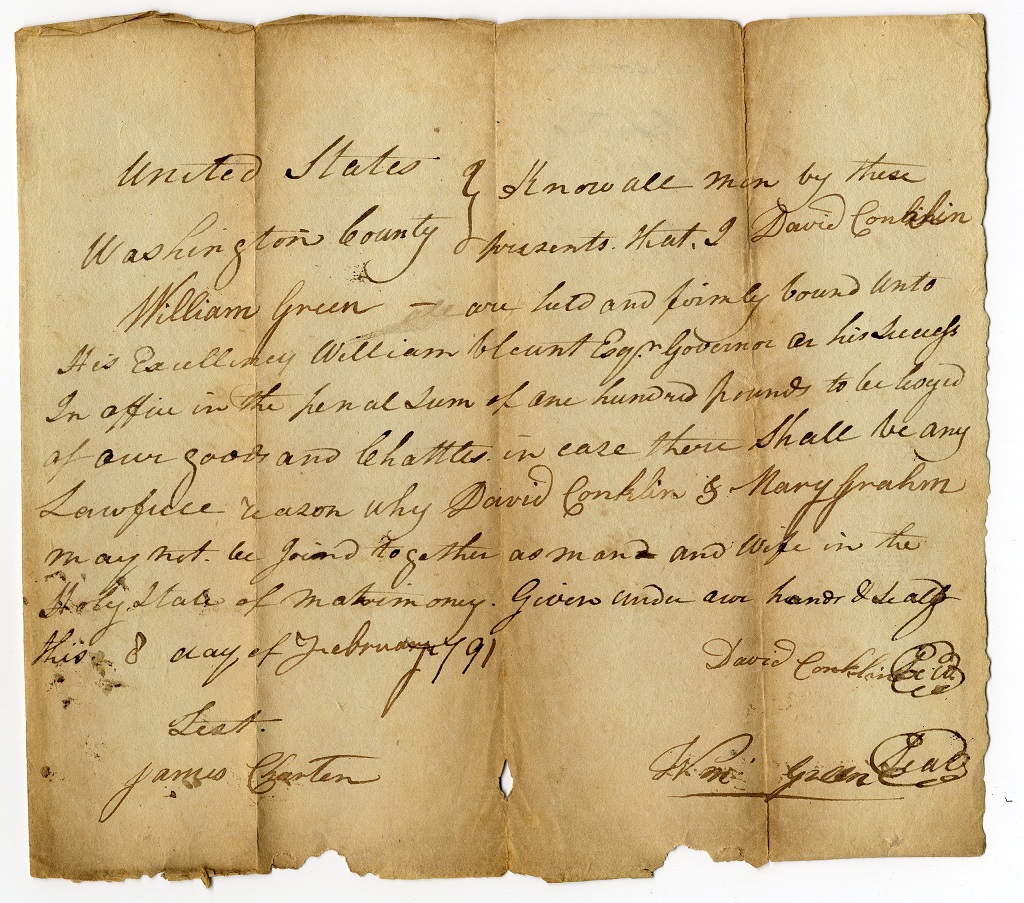 United States } Know all men by these
Washington County } presents that I David Conklin
William Green — are held and firmly bound unto
His Excellency William Blount Esqr Governor or his Success
In office in the penal sum of one hundred pounds to be leveyd
of our goods and Chattles in case there Shall be any
Lawfull reason why David Conklin & Mary Grahm
may not be Joind together as man and Wife in the
Holy State of matrimoney. Given under our hands & seals
this 8 day of February 1791
David Conklin Seal
Test.
James Charten
Wm Green Seal